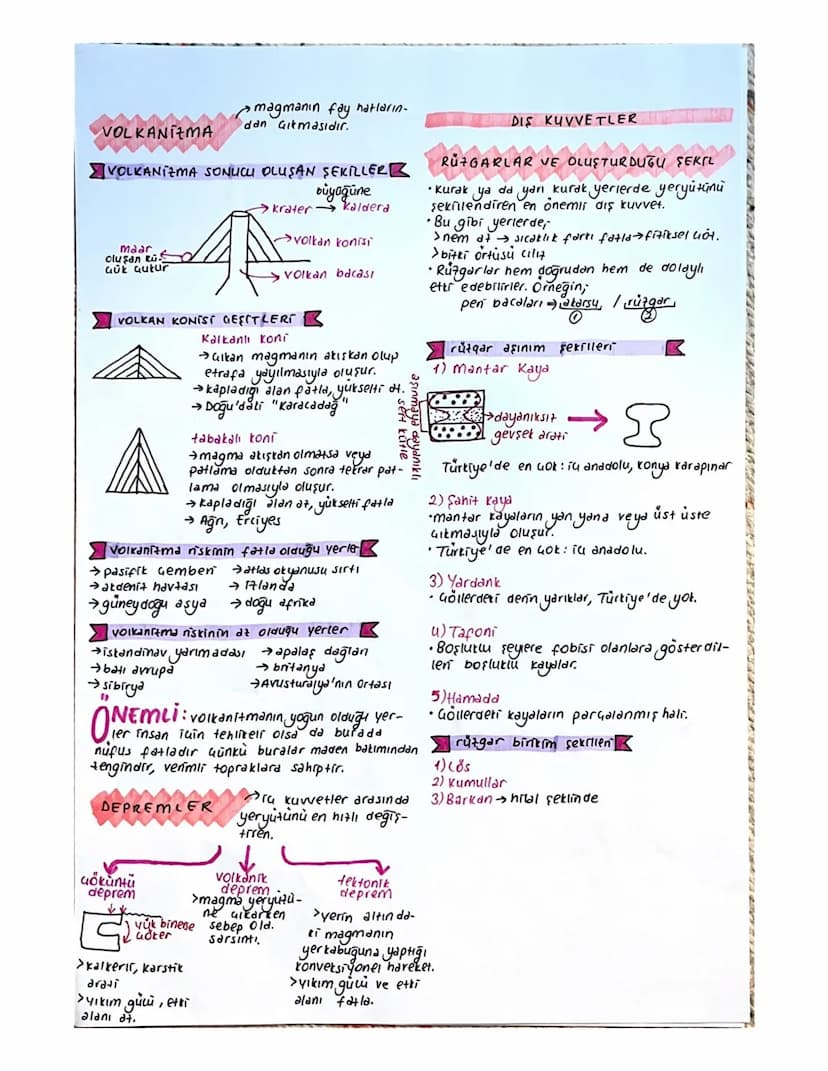 VOLKANİZMA → magmanın fay hatların-
dan çıkmasıdır.
VOLKANİZMA SONUCU OLUŞAN ŞEKİLLER
büyüğüne
→ krater → kaldera
→ volkan konisi
→ volkan bacası
maar
oluşan kü-
çük çukur
VOLKAN KONİSİ ÇEŞİTLERİ
Kalkanlı koni
→ çıkan magmanın akışkan olup
etrafa yayılmasıyla oluşur.
→ kapladığı alan fazla, yükselti az.
→ Doğu'daki "Karacadağ"
tabakalı koni
→ magma akışkan olmazsa veya
patlama olduktan sonra tekrar pat-
lama olmasıyla oluşur.
→ kapladığı alan az, yükselti fazla
→ Ağrı, Erciyes
volkanizma riskinin fazla olduğu yerler
→ pasifik çemberi → atlas okyanusu sırtı
→ akdeniz havzası → İzlanda
→ güneydoğu asya → doğu afrika
volkanizma riskinin az olduğu yerler
→ iskandinav yarımadası → apalaş dağları
→ batı avrupa → britanya
→ sibirya → Avusturalya'nın Ortası
ÖNEMLİ: volkanizmanın yoğun olduğu yer-
ler insan için tehlikeli olsa da burada
nüfus fazladır çünkü buralar maden bakımından
zengindir, verimli topraklara sahiptir.
DEPREMLER → iç kuvvetler arasında
yeryüzünü en hızlı değiş-
tiren.
çöküntü
deprem
yük binese
çöker
> kalkerli, karstik
arazi
> yıkım gücü, etki
alanı az.
volkanik
deprem
> magma yeryüzü-
ne çıkarken
sebep old.
sarsıntı.
tektonik
deprem
> yerin altında-
ki magmanın
yerkabuğuna yaptığı
konveksiyonel hareket.
> yıkım gücü ve etki
alanı fazla.
DIŞ KUVVETLER
RÜZGARLAR VE OLUŞTURDUĞU ŞEKİL
• Kurak ya da yarı kurak yerlerde yeryüzünü
şekillendiren en önemli dış kuvvet.
• Bu gibi yerlerde;
> nem az → sıcaklık farkı fazla → fiziksel çöz.
> bitki örtüsü cılız
• Rüzgarlar hem doğrudan hem de dolaylı
etki edebilirler. Örneğin;
peri bacaları → akarsu / rüzgar
1 2
rüzgar aşınım şekilleri
1) Mantar Kaya
aşınmaya dayanıklı
sert kütle
→ dayanıksız
gevşek arazi
Türkiye'de en çok: iç anadolu, konya karapınar
2) Şahit kaya
• mantar kayaların yan yana veya üst üste
çıkmasıyla oluşur.
• Türkiye'de en çok: iç anadolu.
3) Yardank
• Çöllerdeki derin yarıklar, Türkiye'de yok.
4) Tafoni
• Boşluklu şeylere fobisi olanlara gösterdik-
leri boşluklu kayalar.
5) Hamada
• Çöllerdeki kayaların parçalanmış hali.
rüzgar birikim şekilleri
1) Lös
2) Kumullar
3) Barkan → hilal şeklinde